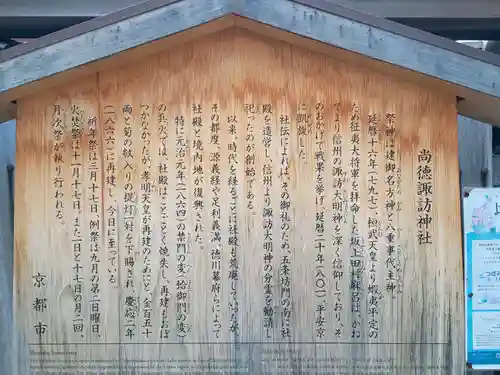 尚徳諏訪神社
祭神は建御名方神と八重事代主神
延暦十六年(七九七)桓武天皇より蝦夷平定の
ため征夷大将軍を拝命した坂上田村麻呂は、かね
てより信州の諏訪大明神を深く信仰しており、そ
のおかげで戦果を挙げ、延暦二十年(八〇一)、平安京
に凱旋した。
社伝によれば、その御礼のため、五条坊門の南に社
殿を造営し、信州より諏訪大明神の分霊を勧請し
祀ったのが創始である。
以来、時代を経るごとに社殿も荒廃していたが
その都度、源義経や足利義満、徳川幕府らによって
社殿と境内地が復興された。
特に元治元年(一八六四)の禁門の変(蛤御門の変)
の兵火では、社殿はことごとく焼失し、再建もおぼ
つかなかったが、孝明天皇が再建のためにと、金百五十
両と菊の紋入りの提灯一対を下賜され、慶応二年
(一八六六)に再建し、今日に至っている。
祈年祭は三月十七日、例祭は九月の第二日曜日
火焚祭は十一月十七日。また二日と十七日の月二回、
月次祭が執り行われる。
京都市